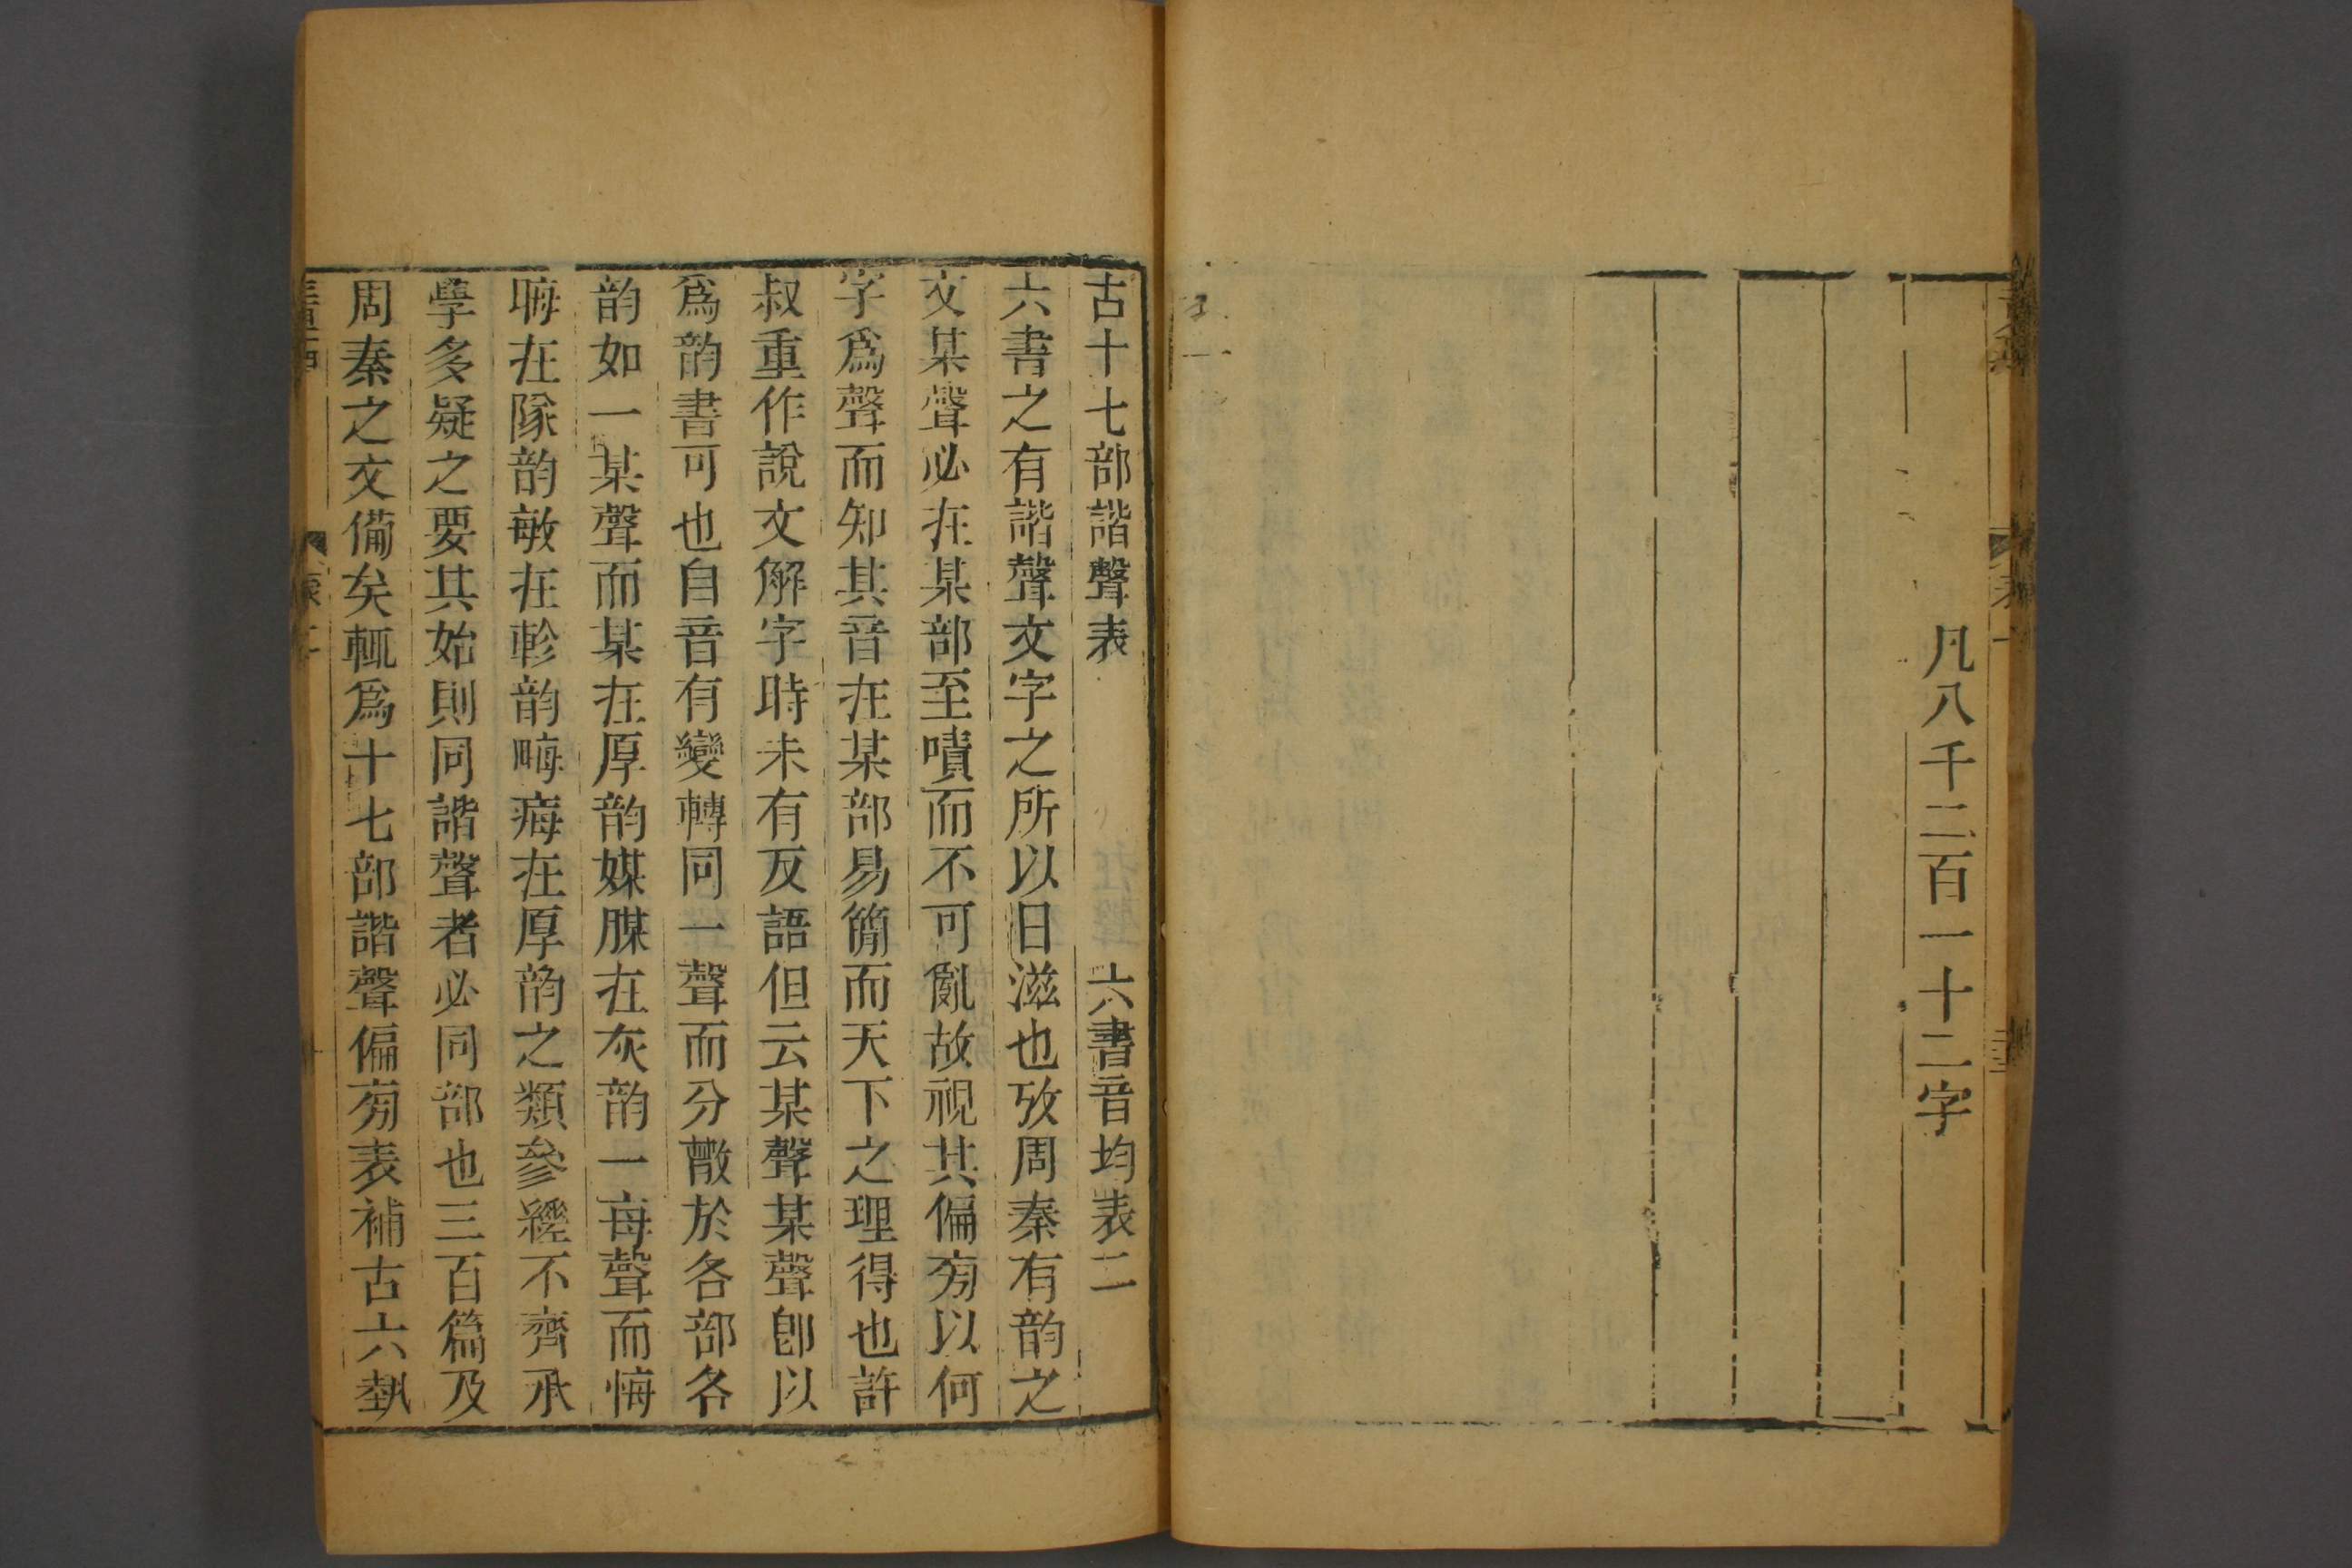 凡八千二百一十二字
古十七部諧聲表 六書音均表二
六書之有諧聲文字之所以日滋也攷周秦有韵之
文某聲必在某部至嘖而不可亂故視其偏㫄以何
字爲聲而知其音在某部易簡而天下之理得也許
叔重作說文解字時未有反語但云某聲某聲卽以
爲韵書可也自音有變轉同一聲而分㪚於各部各
韵如一某聲而某在厚韵媒腜在灰韵一每聲而悔
晦在隊韵敏在軫韵晦痗在厚韵之類參縒不齊承
學多疑之要其始則同諧聲者必同部也三百篇及
周秦之文備矣輒爲十七部諧聲偏㫄表補古六埶